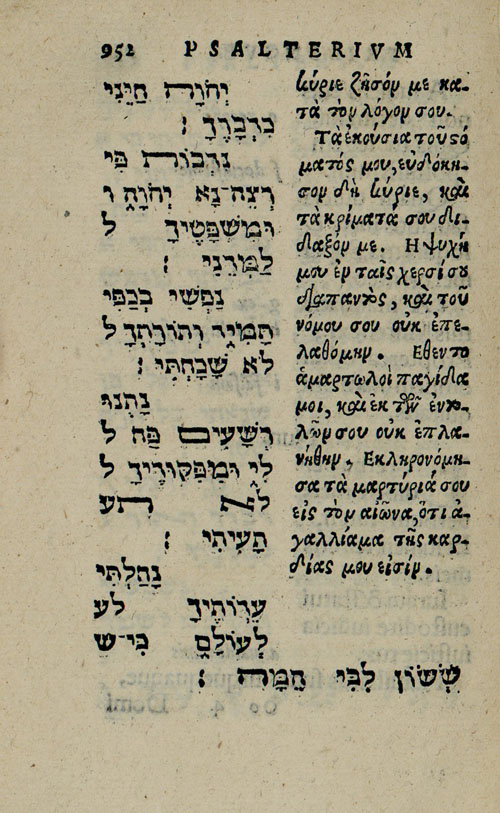 952 PSALTERIVM
יְהֹוָה חַיֵּנִי
כִדְבָרֶךָ :
נִדְבוֹת פִּי
רְצֵה־נָא יְהֹוָה ו
וּמִשְׁפָּטֶיךָ ל
לַמְּדֵנִי :
נַפְשִׁי בְכַפִּי
תָּמִיד וְתוֹרָתְךָ ל
לֹא שָׁכָחְתִּי :
נָתְנוּ
רְשָׁעִים פַּח ל
לִי וּמִפִּקּוּדֶיךָ ל
לֹא תע
תָעִיתִי :
נָחַלְתִּי
עֵדְוֹתֶיךָ לע
לְעוֹלָם כִּי־שׂ
שְׂשׂוֹן לִבִּי הֵמָּה :
κύριε ζῆσόν με κα-
τὰ τὸν λόγον σου.
Τὰ ἑκούσια τοῦ στό
ματός μου, εὐδόκη-
σον δὴ κύριε, καὶ
τὰ κρίματά σου δί-
δαξόν με. Η ψυχή
μου ἐν ταῖς χερσί σου
διαπαντὸς, καὶ τοῦ
νόμου σου οὐκ ἐπε-
λαθόμην. Εθεντο
ἁμαρτωλοὶ παγίδα
μοι, καὶ ἐκ τῶν ἐντο-
λῶν σου οὐκ ἐπλα-
νήθην. Εκληρονόμη-
σα τὰ μαρτύριά σου
εἰς τὸν αἰῶνα, ὅτι ἀ-
γαλλίαμα τῆς καρ-
δίας μου εἰσίν.